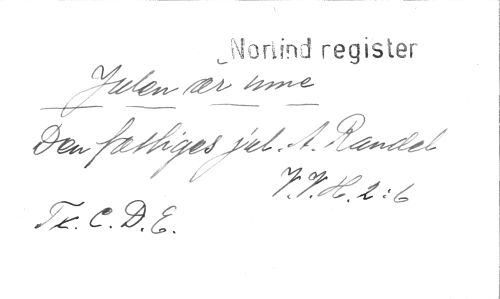 Norlind register
Julen är inne
Den fattiges jul. A. Randel
V.V.H. 2:6
Tr. C. D. E.